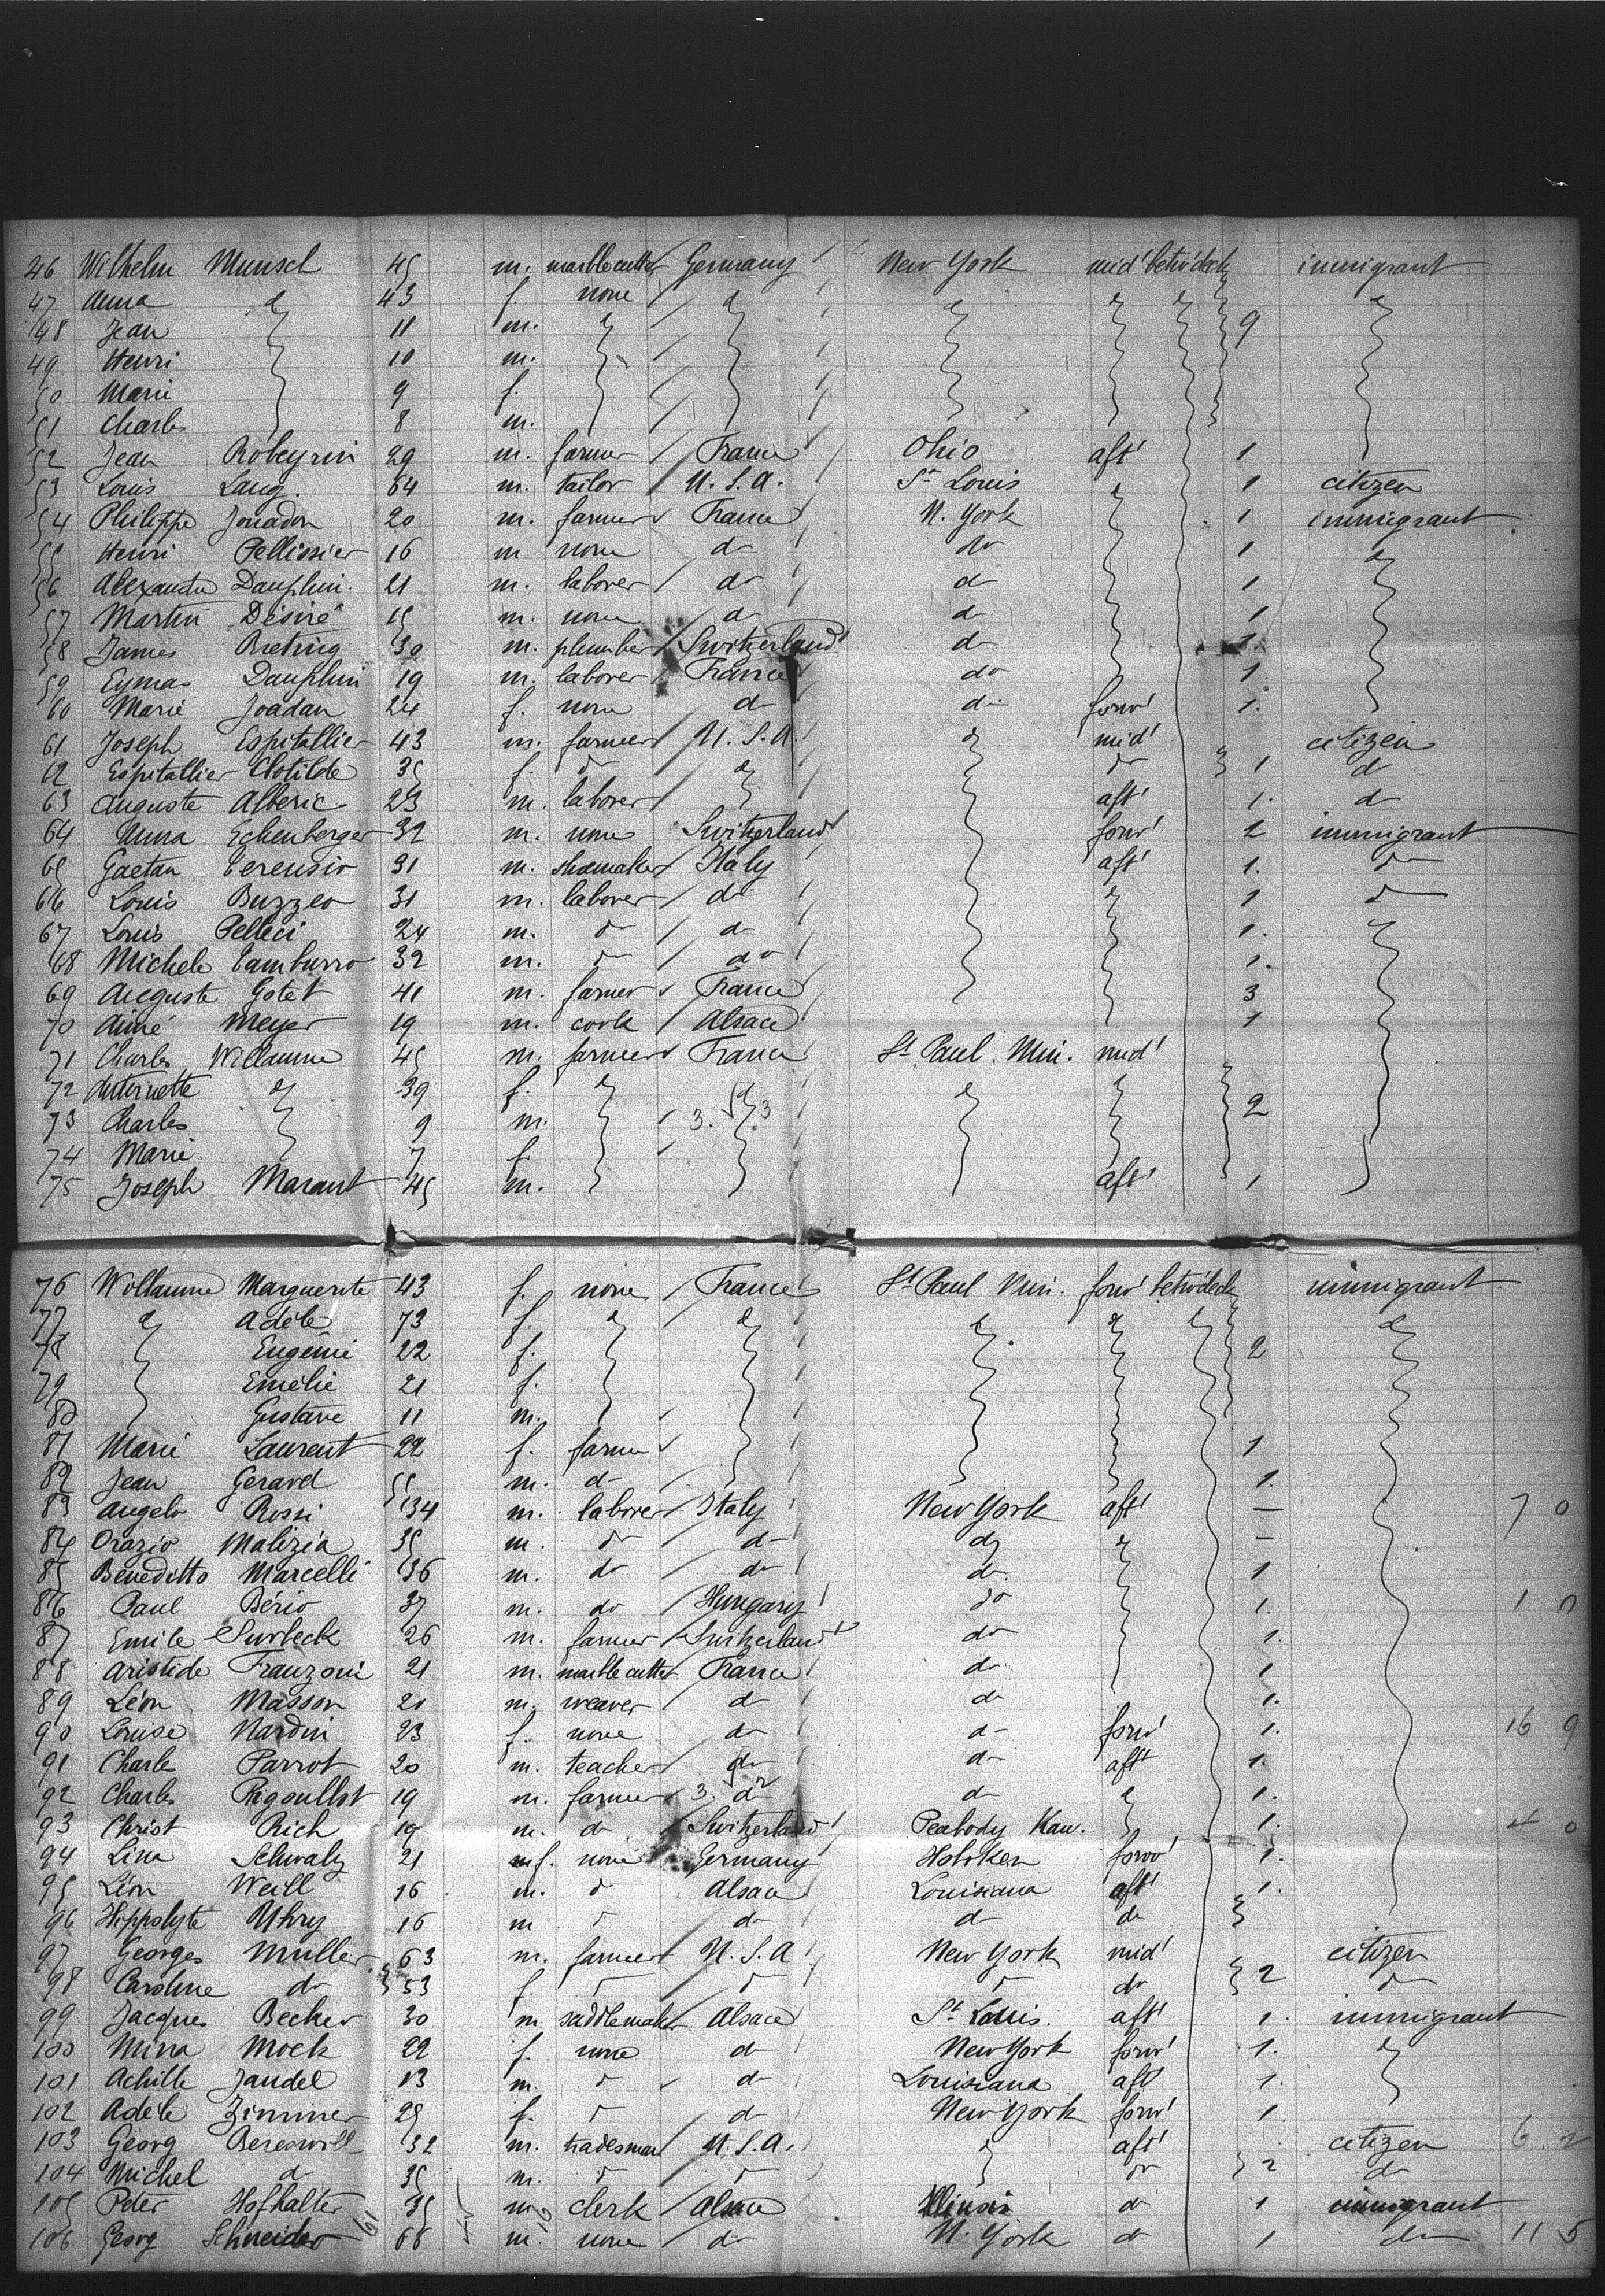 46 Wilhelm Munsch 45 m. marble cutter Germany New York mid' betw' deck immigrant
47 Anna d 43 f. none d
48 Jean 11 m. 9
49 Henri 10 m.
50 Marie 9 f.
51 Charles 8 m.
52 Jean Robeyrin 29 m. farmer France Ohio aft' 1
53 Louis Laug. 64 m. tailor U.S.A. St Louis 1 citizen
54 Philippe Jouadon 20 m. farmer France N. York 1 immigrant
55 Henri Pellissier 16 m none do do 1
56 Alexandre Dauphin. 21 m. laborer do d 1
57 Martin Désiré 15 m. none d d 1
58 James Breting 30 m. plumber Switzerland d 1.
59 Eymas Dauphin 19 m. laborer France do 1
60 Marie Joadan 24 f. none d d forw' 1.
61 Joseph Espitallier 43 m. farmer U.S.A. mid' citizen
62 Espitallier Clotilde 35 f. d do 1 d
63 Auguste Alberic 23 m. laborer aft' 1. d
64 Anna Echenberger 32 m. none Switzerland forw' 2 immigrant
65 Gaetan Terensio 31 m. shoemaker Italy aft' 1. d
66 Louis Buzzeo 31 m. laborer do 1 d
67 Louis Pelleci 24 m. d d 1.
68 Michele Tamburro 32 m. d do 1.
69 Auguste Gotet 41 m. farmer France 3
70 Aimé Meyer 19 m. cook Alsace 1
71 Charles Willaume 45 m. farmer France St Paul. Min. mid'
72 Antoinette 39 f.
73 Charles 9 m. 3. 3 2
74 Marie 7 f.
75 Joseph Marant 45 m. aft' 1
76 Wollaume Marguerite 43 f. none France St Paul Min. forw' betw' deck immigrant
77 Adèle 73 f.
78 Eugénie 22 f. 2
79 Emélie 21 f.
80 Gustave 11 m.
81 Marie Laurent 22 f. farmer 1
82 Jean Gerard 55 m. d 1.
83 Angelo Rossi 34 m. laborer Italy New York aft' — 7 0
84 Orazio Malizia 35 m. d d d —
85 Beneditto Marcelli 36 m. do do d. 1
86 Paul Bério 37 m. do Hungary do 1.
87 Emile Surbeck 26 m. farmer Switzerland do 1.
88 Aristide Franzoni 21 m. marble cutter France do 1
89 Léon Masson 21 m. weaver d d 1.
90 Louise Nardin 23 f. none d d forw' 1. 16 9
91 Charles Parrot 20 m. teacher do d aft 1.
92 Charles Rigoullot 19 m. farmer 3. d d 1.
93 Christ Rich 19 m. d Switzerland Peabody Kan. 1. 4 0
94 Lina Schwalz 21 f. none Germany Hoboken forw' 1.
95 Léon Weill 16 m. d Alsace Louisiana aft' 1.
96 Hippolyte Uhry 16 m d d d do
97 Georges Muller 63 m. farmer U.S.A. New York mid' citizen
98 Caroline do 53 f. d d d do 2 d
99 Jacques Becker 30 m saddlemaker Alsace St Louis. aft' 1. immigrant
100 Mina Mock 22 f. none d New York forw' 1.
101 Achille Jaudel 13 m. d d Louisiana aft' 1.
102 Adèle Zimmer 25 f. d d New York forw' 1
103 Georg 32 m. tradesman U.S.A. aft' citizen 6 2
104 Michel d 35 m. d d do 2 d
105 Peter Hofhalter 35 m clerk Alsace Illinois d 1 immigrant
106 Georg Schneider 66 m. none do N. York d 1 do 11 5